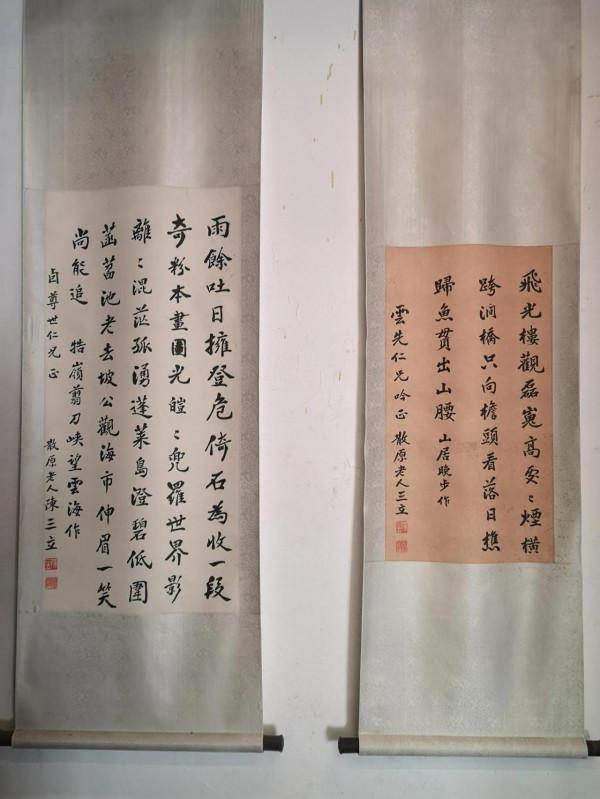 飛光樓觀磊嵬高〻煙橫
跨澗橋只向檐頭看落日樵
歸魚貫出山腰 山居晚步作
雲先仁兄吟正 散原老人三立
雨餘吐日擁登危倚石為收一段
奇粉本畫圖光皚〻兜羅世界影
離〻混茫孤湧蓬萊島澄碧低圍
菡萏池老去坡公觀海市伸眉一笑
尚能追 牯嶺翦刀峽望雲海作
卣尊世仁兄正 散原老人陳三立